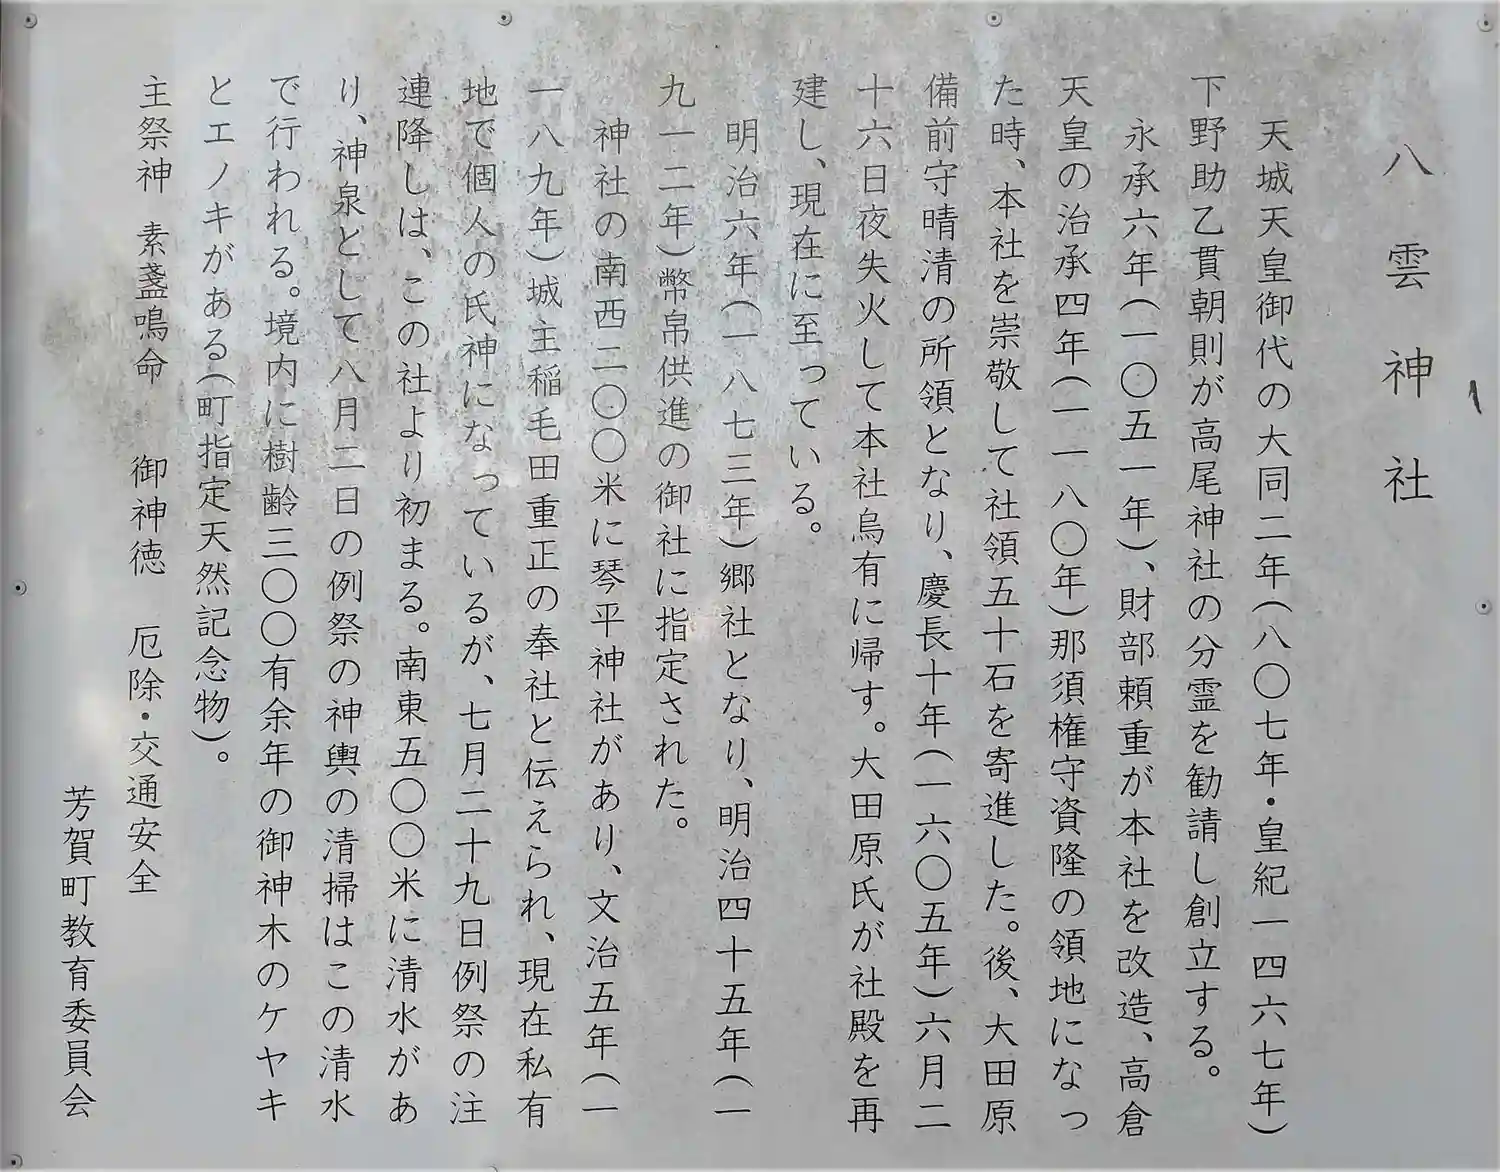 八雲神社
天城天皇御代の大同二年(八〇七年・皇紀一四六七年)
下野助乙貫朝則が高尾神社の分霊を勧請し創立する。
永承六年(一〇五一年)、財部頼重が本社を改造、高倉
天皇の治承四年(一一八〇年)那須権守資隆の領地になっ
た時、本社を崇敬して社領五十石を寄進した。後、大田原
備前守晴清の所領となり、慶長十年(一六〇五年)六月二
十六日夜失火して本社烏有に帰す。大田原氏が社殿を再
建し、現在に至っている。
明治六年(一八七三年)郷社となり、明治四十五年(一
九一二年)幣帛供進の御社に指定された。
神社の南西二〇〇米に琴平神社があり、文治五年(一
一八九年)城主稲毛田重正の奉社と伝えられ、現在私有
地で個人の氏神になっているが、七月二十九日例祭の注
連降しは、この社より初まる。南東五〇〇米に清水があ
り、神泉として八月二日の例祭の神輿の清掃はこの清水
で行われる。境内に樹齢三〇〇有余年の御神木のケヤキ
とエノキがある(町指定天然記念物)。
主祭神 素盞鳴命 御神徳 厄除・交通安全
芳賀町教育委員会